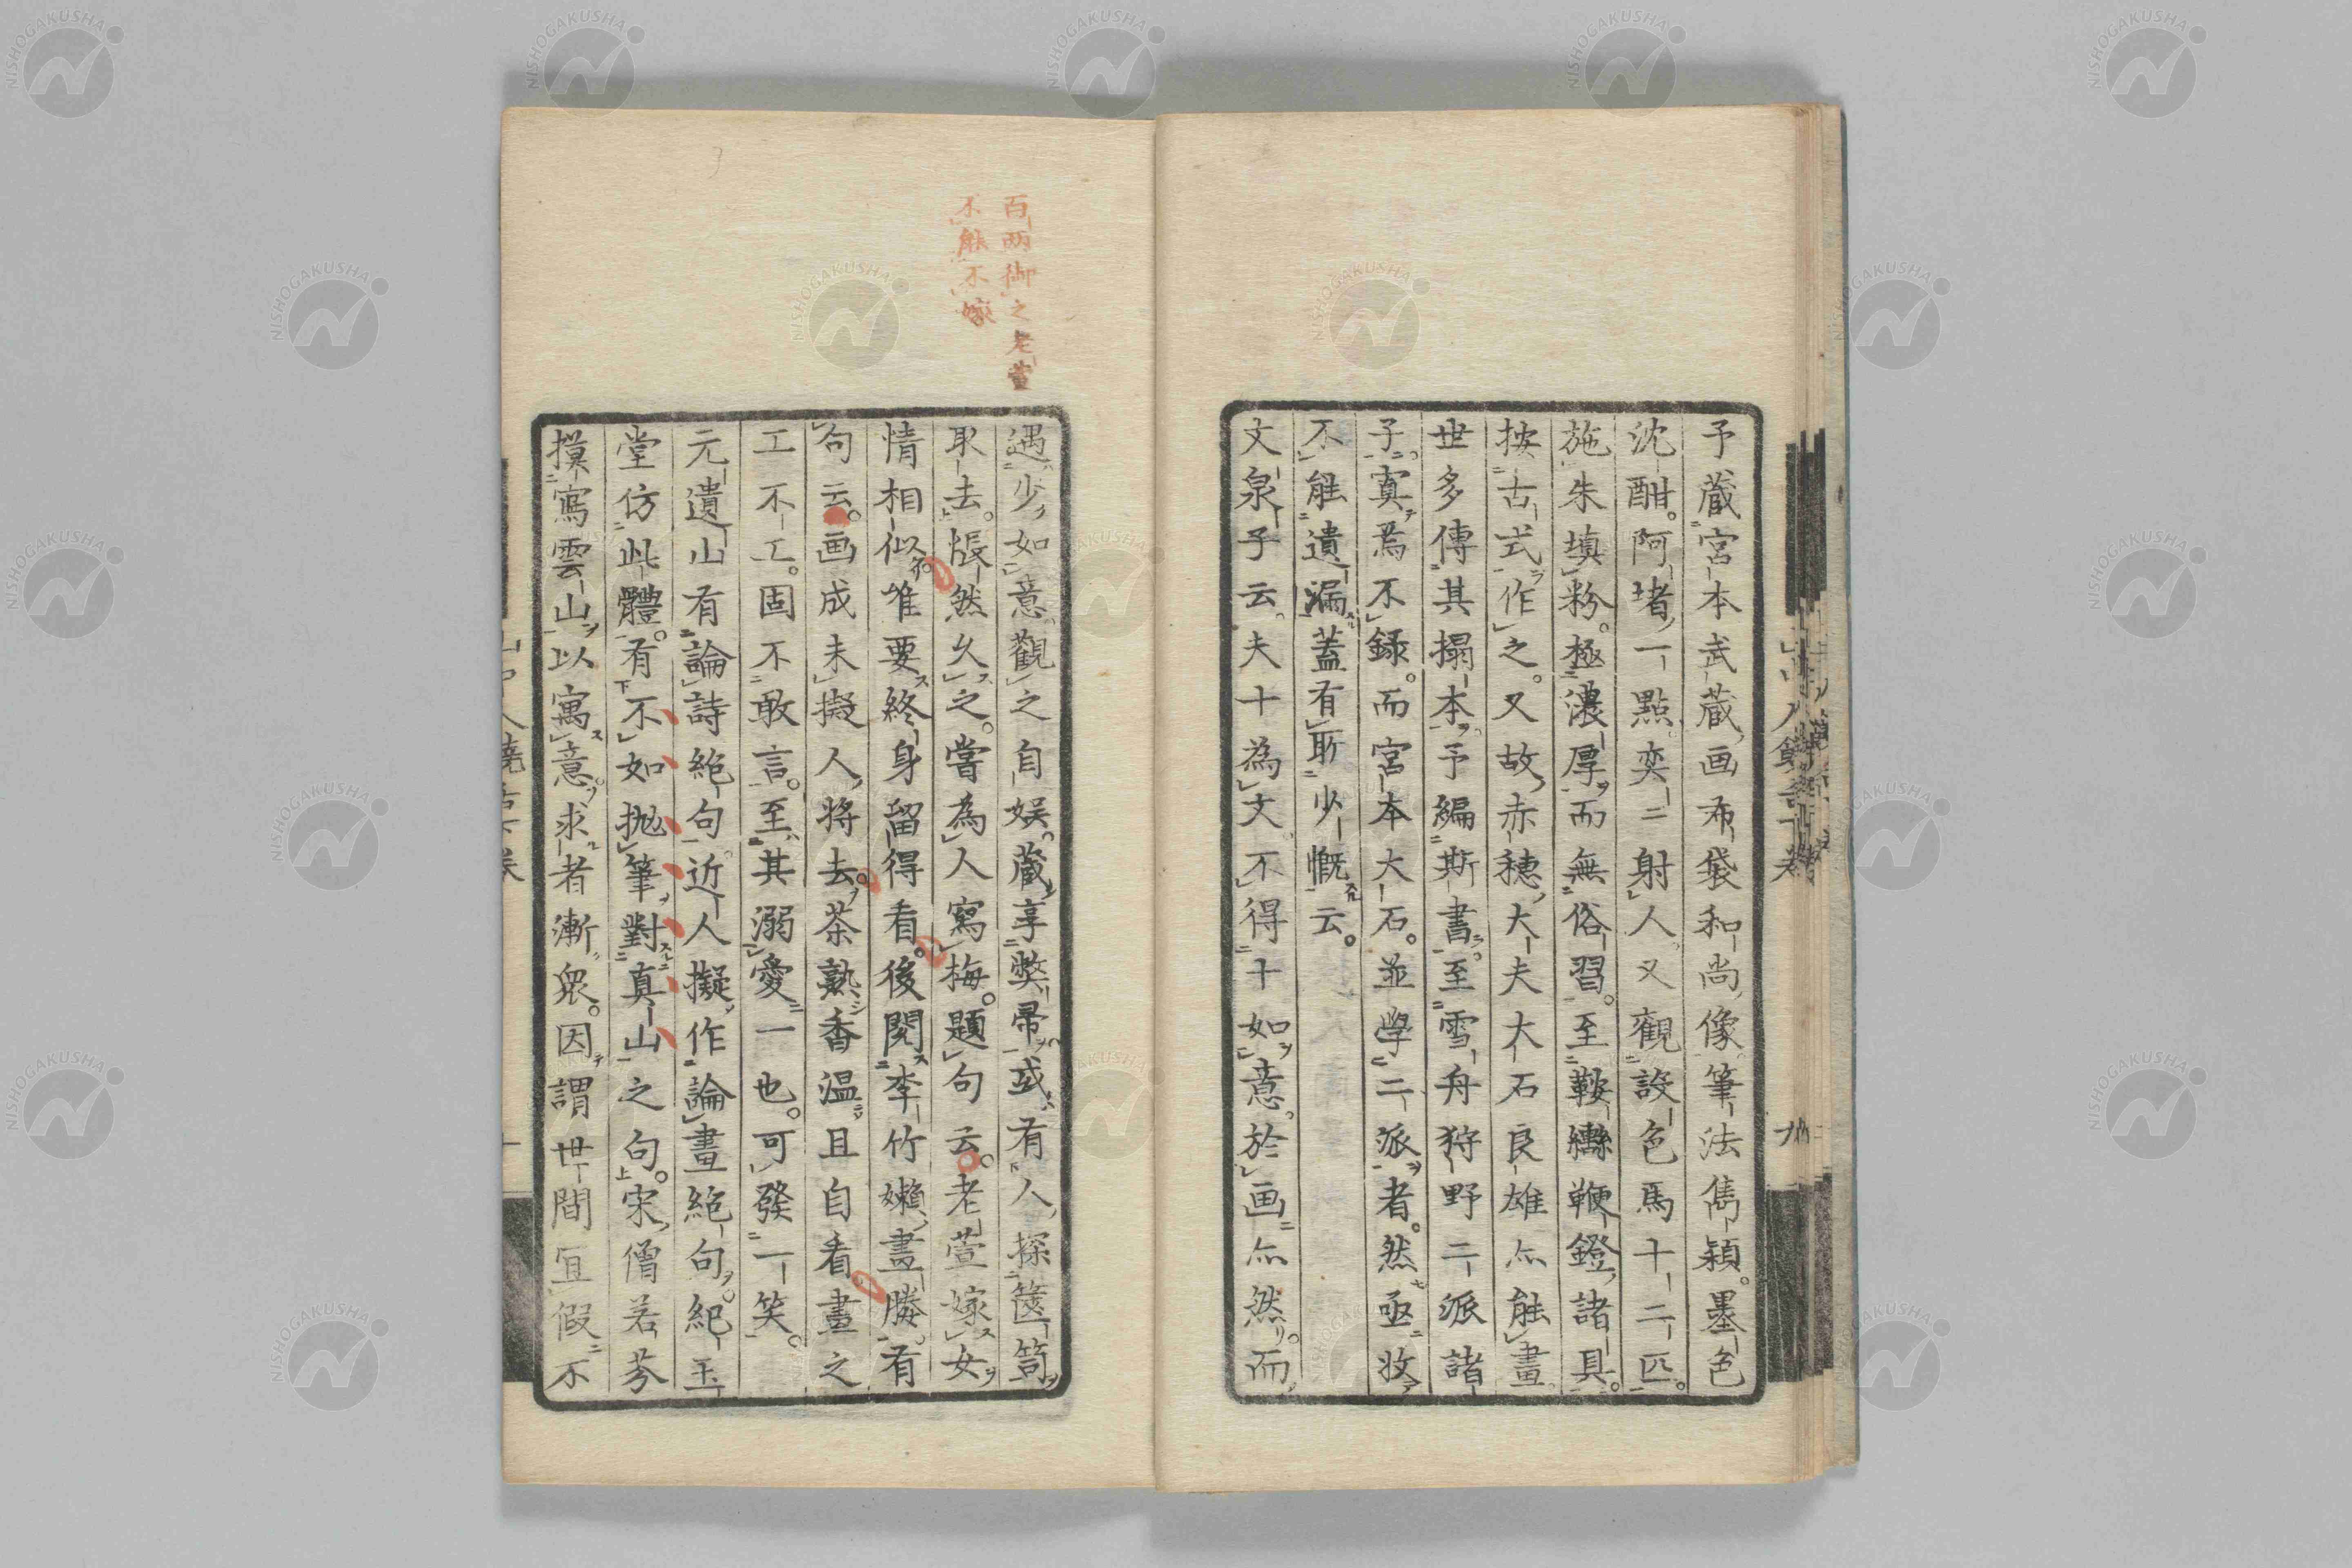 予蔵宮本武蔵画布袋和尚像筆法儁穎。墨色
沈酣。阿堵一點奕二射人又觀設色馬十二匹。
施朱填粉。極濃厚而無俗習。至鞍轡鞭鐙諸具。
按古式作之。又故赤穗大夫大石良雄亦能畫
世多傳其搨本。予編斯書。至雪舟狩野二派諸
子。寘焉不録。而宮本大石。並學二派者。然亟收
不能遺漏蓋有所少慨云。
文泉子云。夫十為文不得十如意。於画亦然。而
遇少如意觀之自娯。蔵享弊帚或有人探篋笥
取去。悵然久之。嘗為人寫梅。題句云。老萱嫁女
情相似。唯要終身留得看。後閲李竹嬾畫媵有
句云。画成未擬人將去。茶熟香温且自看畫之
工不工。固不敢言。至其溺愛一也。可發一笑。
元遺山有論詩絶句。近人擬作論畫絶句。紀玉
堂仿此體。有不如抛筆對真山之句。宋僧若芬
摸寫雲山以寓意。求者漸衆。因謂世間宜假不
百両御之老萱
不能不嫁